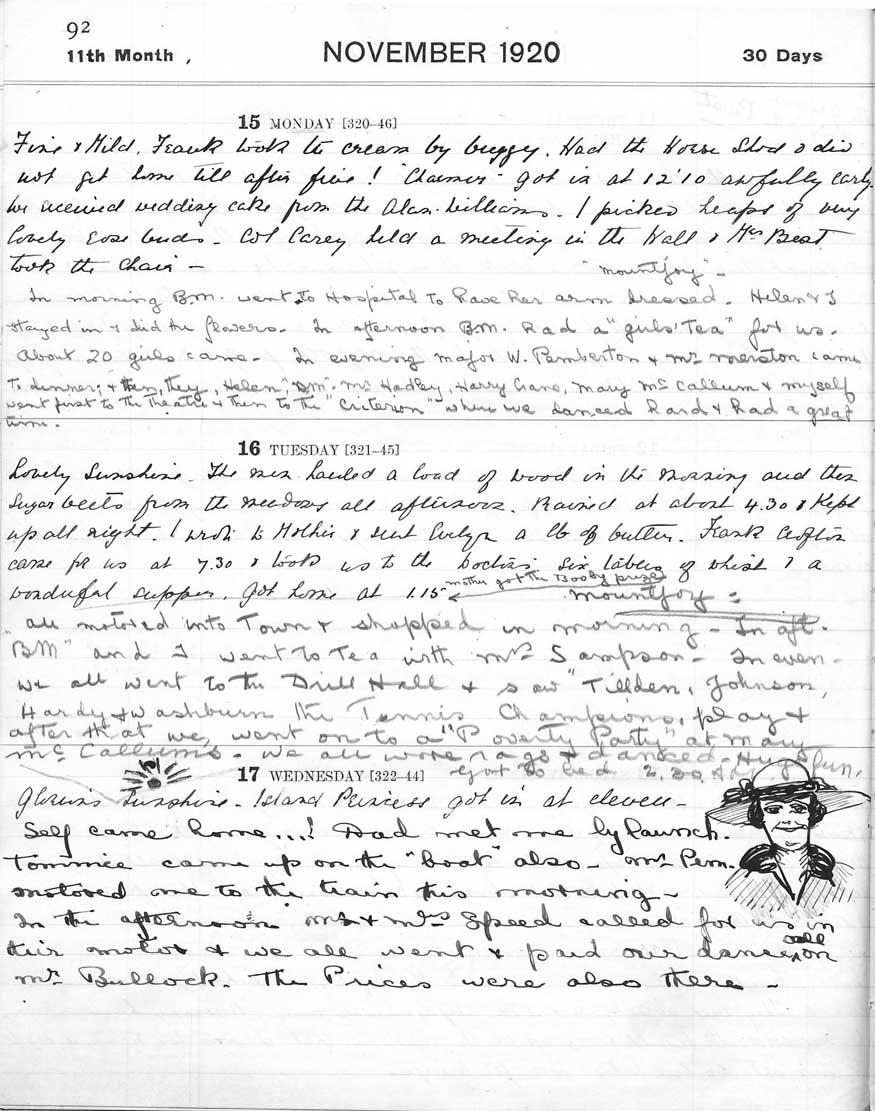 92
11th Month , NOVEMBER 1920 30 Days
15 MONDAY [320-46]
Fine & Mild. Frank took the cream by buggy. Had the Horse Shod & did
not get home till after five! "Charmer" got in at 12'10 awfully early.
We received wedding cake from the Alan-Williams. I picked heaps of very
lovely Rose buds. Col Carey held a meeting in the Hall & Mrs Best
took the Chair —
"Mountjoy" -
In morning B.M. went to Hospital to have her arm dressed. Helen & I
stayed in & did the flowers. In afternoon B.M. had a "girls' Tea" for us.
About 20 girls came. In evening Major W. Pemberton & Mr. Merston came
to dinner, & then, they, Helen, "B.M." Mr Hadley, Harry Crane, Mary McCallum & myself
went first to the Theatre & then to the "Criterion" where we danced hard & had a great
time.
16 TUESDAY [321-45]
Lovely Sunshine. The men hauled a load of wood in the morning and then
Sugar beets from the meadows all afternoon. Rained at about 4.30 & kept
up all night. I wrote to Mother & sent Evelyn a lb of butter. Frank Crofton
came for us at 7.30 & took us to the Doctors. Six tables of whist & a
wonderful supper. Got home at 1.15 mother got the Booby prize
Mountjoy =
"all motored into Town & shopped in morning - In aft.
BM" and I went to Tea with Mrs Sampson - In even-
we all went to the Drill Hall & saw "Tillden, Johnson,
Hardy & Washburn the Tennis Champions, play &
after that we, went on to a "Poverty Party" at Mary
McCallum's - We all wore rags & danced - Huge fun.
got to bed 2.30 A.M.
17 WEDNESDAY [322-44]
Glorious Sunshine. Island Princess got in at eleven -
Self came home...! Dad met me by launch.
Tommie came up on the "boat" also - Mr Pem.
motored me to the train this morning -
In the afternoon Mr & Mrs Speed called for us in
their motor & we all went & paid our dance call on
Mr. Bullock. The Prices were also there -